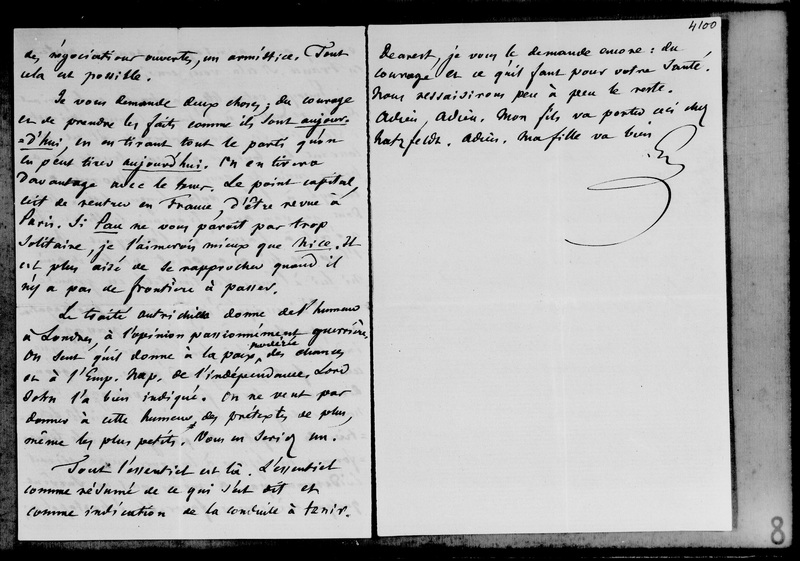 des négociations ouvertes, un armistice. Tout
cela est possible.
Je vous demande deux choses ; du courage
et de prendre les faits comme ils sont aujour-
-d'hui, en en tirant tout le parti qu'on
en peut tirer aujourd'hui. On en tirera
davantage avec le tems. Le point capital,
c'est de rentrer en France, d'être revue à
Paris. Si Pau ne vous paroît pas trop
solitaire, je l'aimerois mieux que Nice. Il
est plus aisé de se rapprocher quand il
n'y a pas de frontière à passer.
Le traité autrichien donne de l'humeur
à Londres, à l'opinion passionnément guerrière.
On sent qu'il donne à la paix modérée des chances
et à l'Emp. Nap. de l'indépendance. Lord
John l'a bien indiqué. On ne veut pas
donner à cette humeur des prétextes de plus,
même les plus petits. Vous en seriez un.
Tout l'essentiel est là. L'essentiel
comme résumé de ce qui s'est dit et
comme indication de la conduite à tenir.
4100
Dearest, je vous le demande encore : du
courage et ce qu'il faut pour votre santé.
Nous ressaisirons peu à peu le reste.
Adieu, Adieu. Mon fils va porter ceci chez
Hatzfeldt. Adieu. Ma fille va bien
8